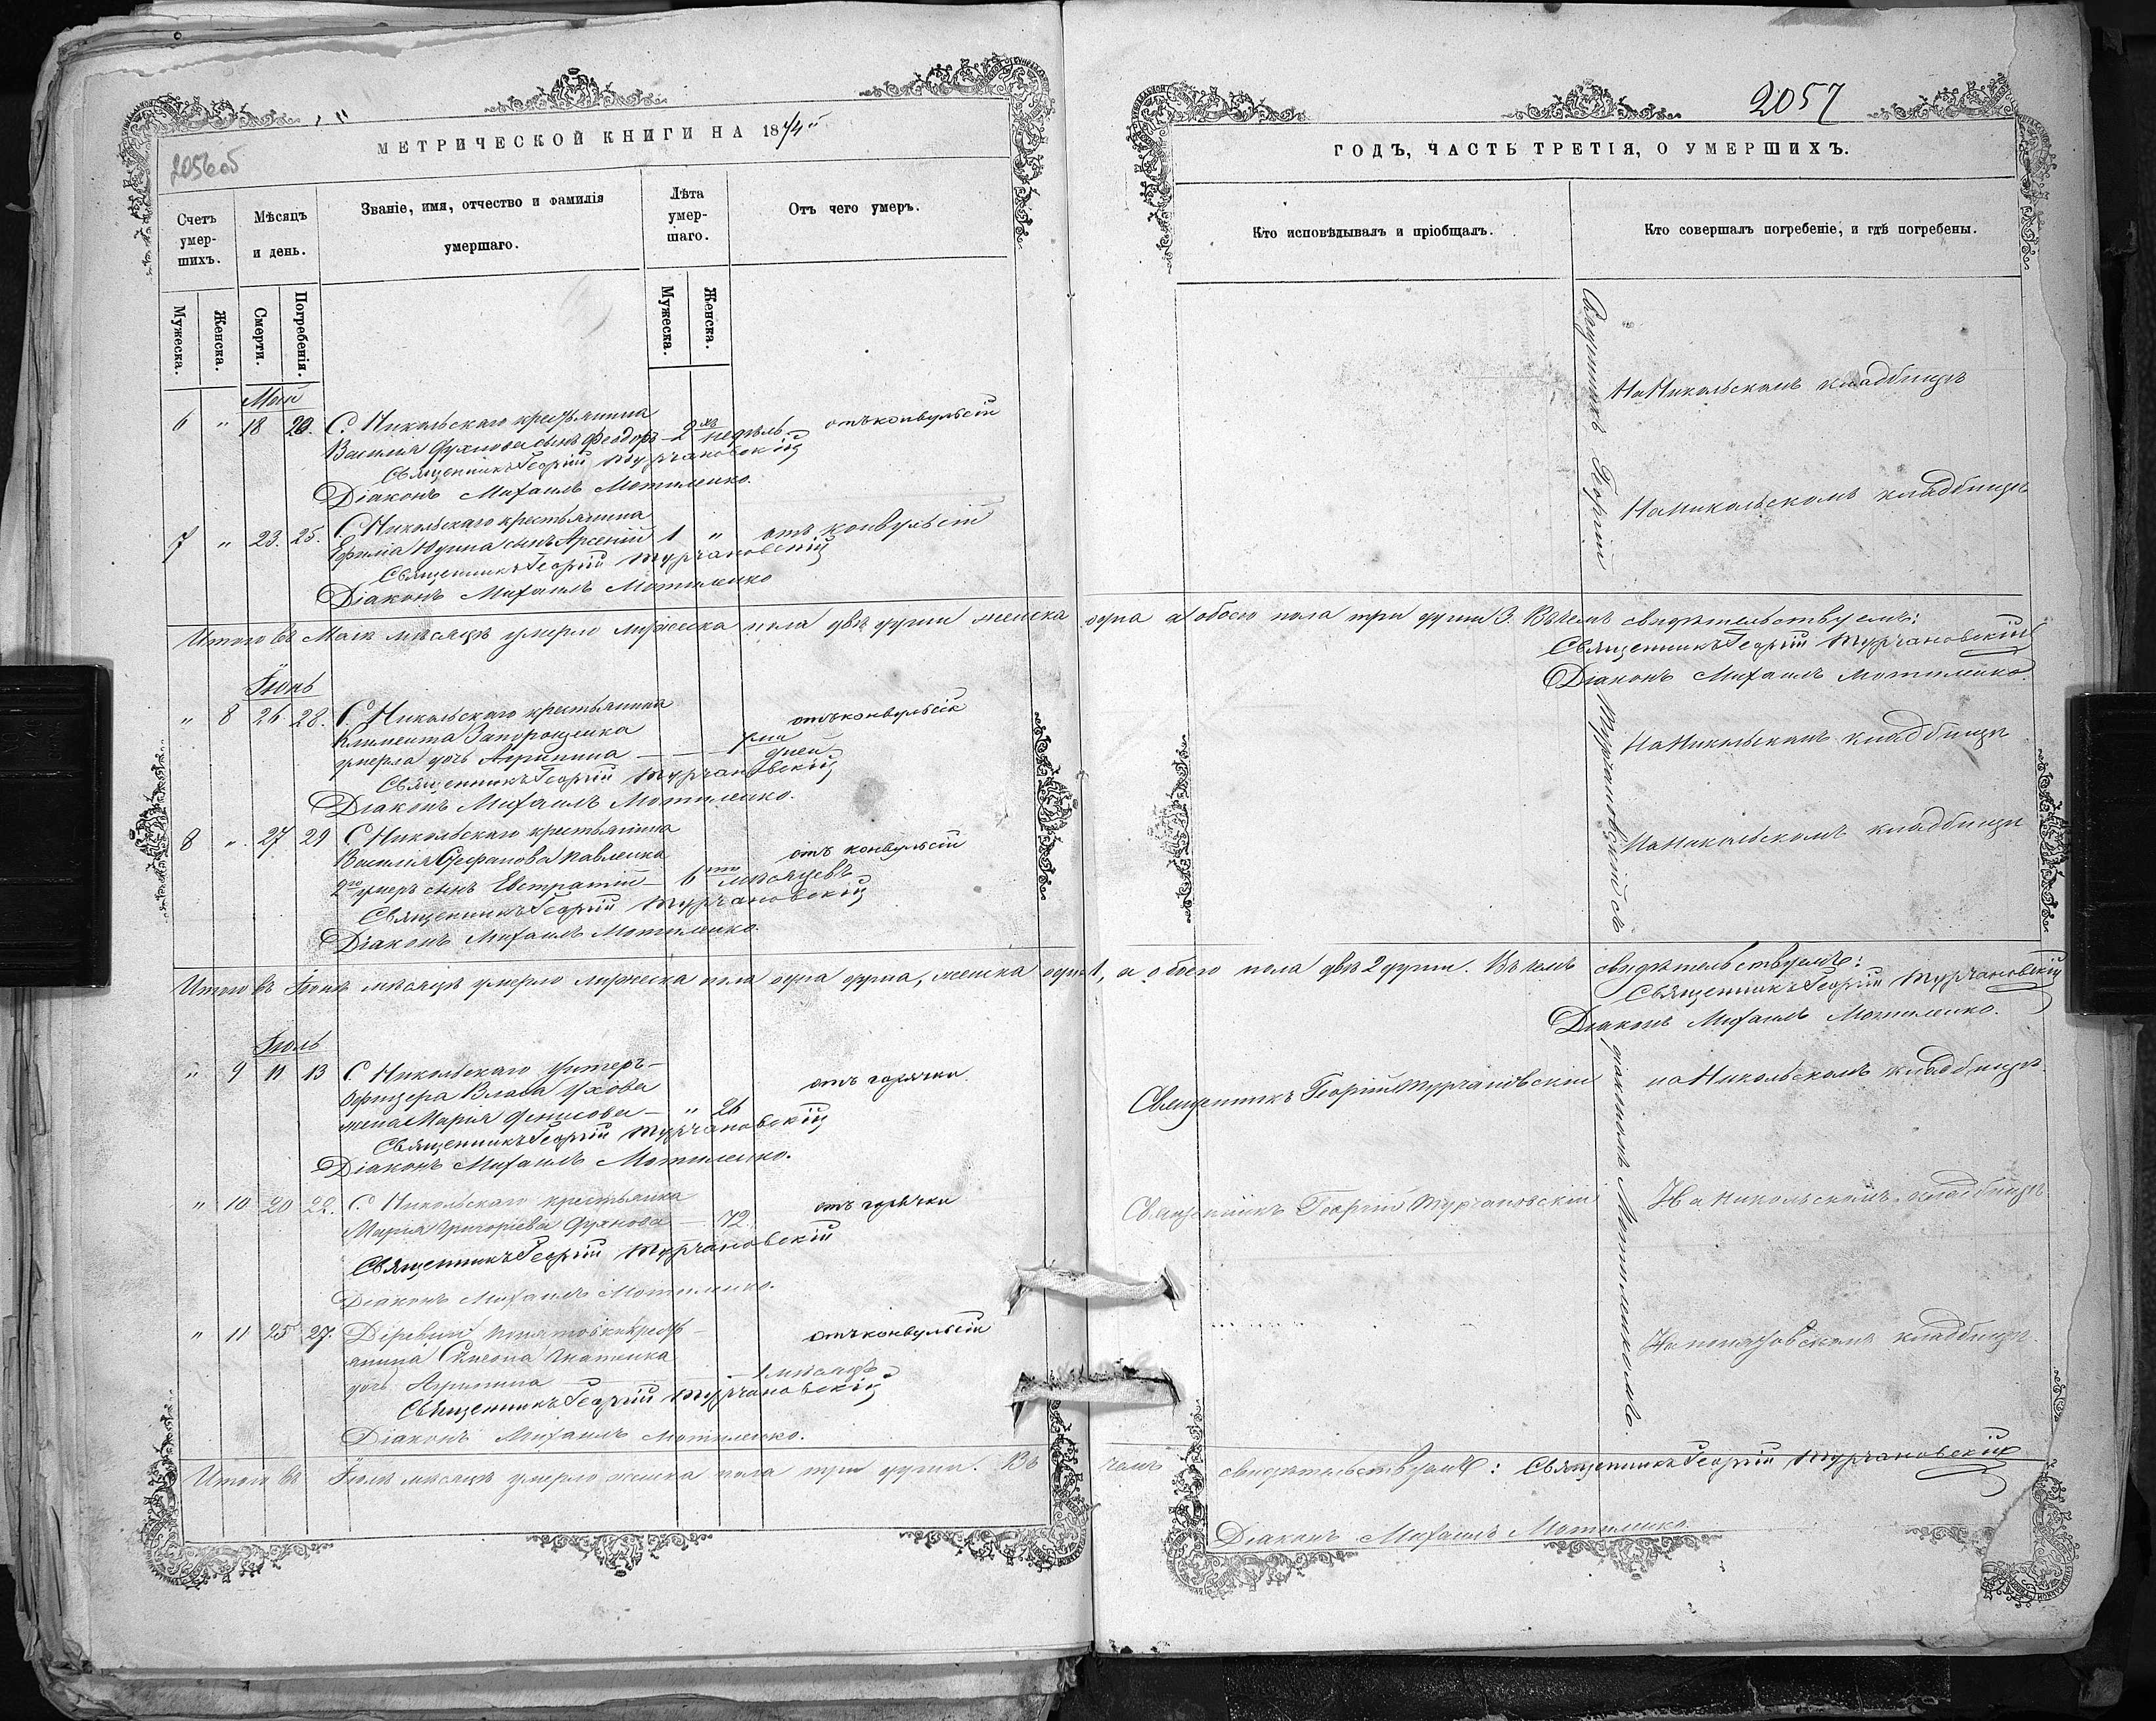 МЕТРИЧЕСКОЙ КНИГИ НА 1874й
2056об
Счетъ умер-шихъ.
Мѣсяцъ и день.
Званіе, имя, отчество и фамилія умершаго.
Лѣта умер-шаго.
Отъ чего умеръ.
Мужеска.
Женска.
Смерти.
Погребенія.
Мужеска.
Женска.
Май
6 " 18 20. С. Никольскаго крестьянина
Василія Духнова сынъ Феодоръ — 2хъ недѣль отъ конвульсій
Священникъ Георгій Турчановскій
Діаконъ Михаилъ Мотиленко.
7 " 23. 25. С. Никольскаго крестьянина
Ефима Юдина сынъ Арсеній 1 " отъ конвульсій
Священникъ Георгій Турчановскій
Діаконъ Михаилъ Мотиленко
Итого въ Маѣ мѣсяцѣ умерло мужеска пола двѣ души женска
Іюнь
" 8 26 28. С. Никольскаго крестьянина
Климента Запорощенка отъ конвульсій
умерла дочь Агрипина — дней
Священникъ Георгій Турчановскій
Діаконъ Михаилъ Мотиленко.
8 " 27 29 С. Никольскаго крестьянина
Василія Стефанова Павленка отъ конвульсій
умеръ сынъ Евстратій — 6ти мѣсяцевъ
Священникъ Георгій Турчановскій
Діаконъ Михаилъ Мотиленко.
Итого въ Іюнѣ мѣсяцѣ умерло мужеска пола одна душа, женска одна 1,
Іюль
" 9 11 13 С. Никольскаго Унтеръ-
Офицера Власа Ухова отъ горячки
жена Марія Денисова — " 26
Священникъ Георгій Турчановскій
Діаконъ Михаилъ Мотиленко.
" 10 20 22. С. Никольскаго крестьянка отъ горячки
Марія Григоріева Духнова — 72.
Священникъ Георгій Турчановскій
Діаконъ Михаилъ Мотиленко.
" 11 25 27. Деревни крестьянина Симеона отъ конвульсій
дочь Агрипина 1 мѣсяцъ
Священникъ Георгій Турчановскій
Діаконъ Михаилъ Мотиленко.
Итого въ Іюлѣ мѣсяцѣ умерло женска пола три души. Въ
2057
ГОДЪ, ЧАСТЬ ТРЕТІЯ, О УМЕРШИХЪ.
Кто исповѣдывалъ и пріобщалъ.
Кто совершалъ погребеніе, и гдѣ погребены.
Священникъ Георгій Турчановскій съ діакономъ Мотиленкомъ.
На Никольскомъ кладбищѣ
На Никольскомъ кладбищѣ
одна а обоего пола три души 3. Въ чемъ свидѣтельствуемъ:
Священникъ Георгій Турчановскій
Діаконъ Михаилъ Мотиленко.
На Никольскомъ кладбищѣ
На Никольскомъ кладбищѣ
а обоего пола двѣ 2 души. Въ чемъ свидѣтельствуемъ:
Священникъ Георгій Турчановскій
Діаконъ Михаилъ Мотиленко.
Священникъ Георгій Турчановскій на Никольскомъ кладбищѣ
Священникъ Георгій Турчановскій На Никольскомъ кладбищѣ
кладбищѣ.
чемъ свидѣтельствуемъ: Священникъ Георгій Турчановскій
Діаконъ Михаилъ Мотиленко.